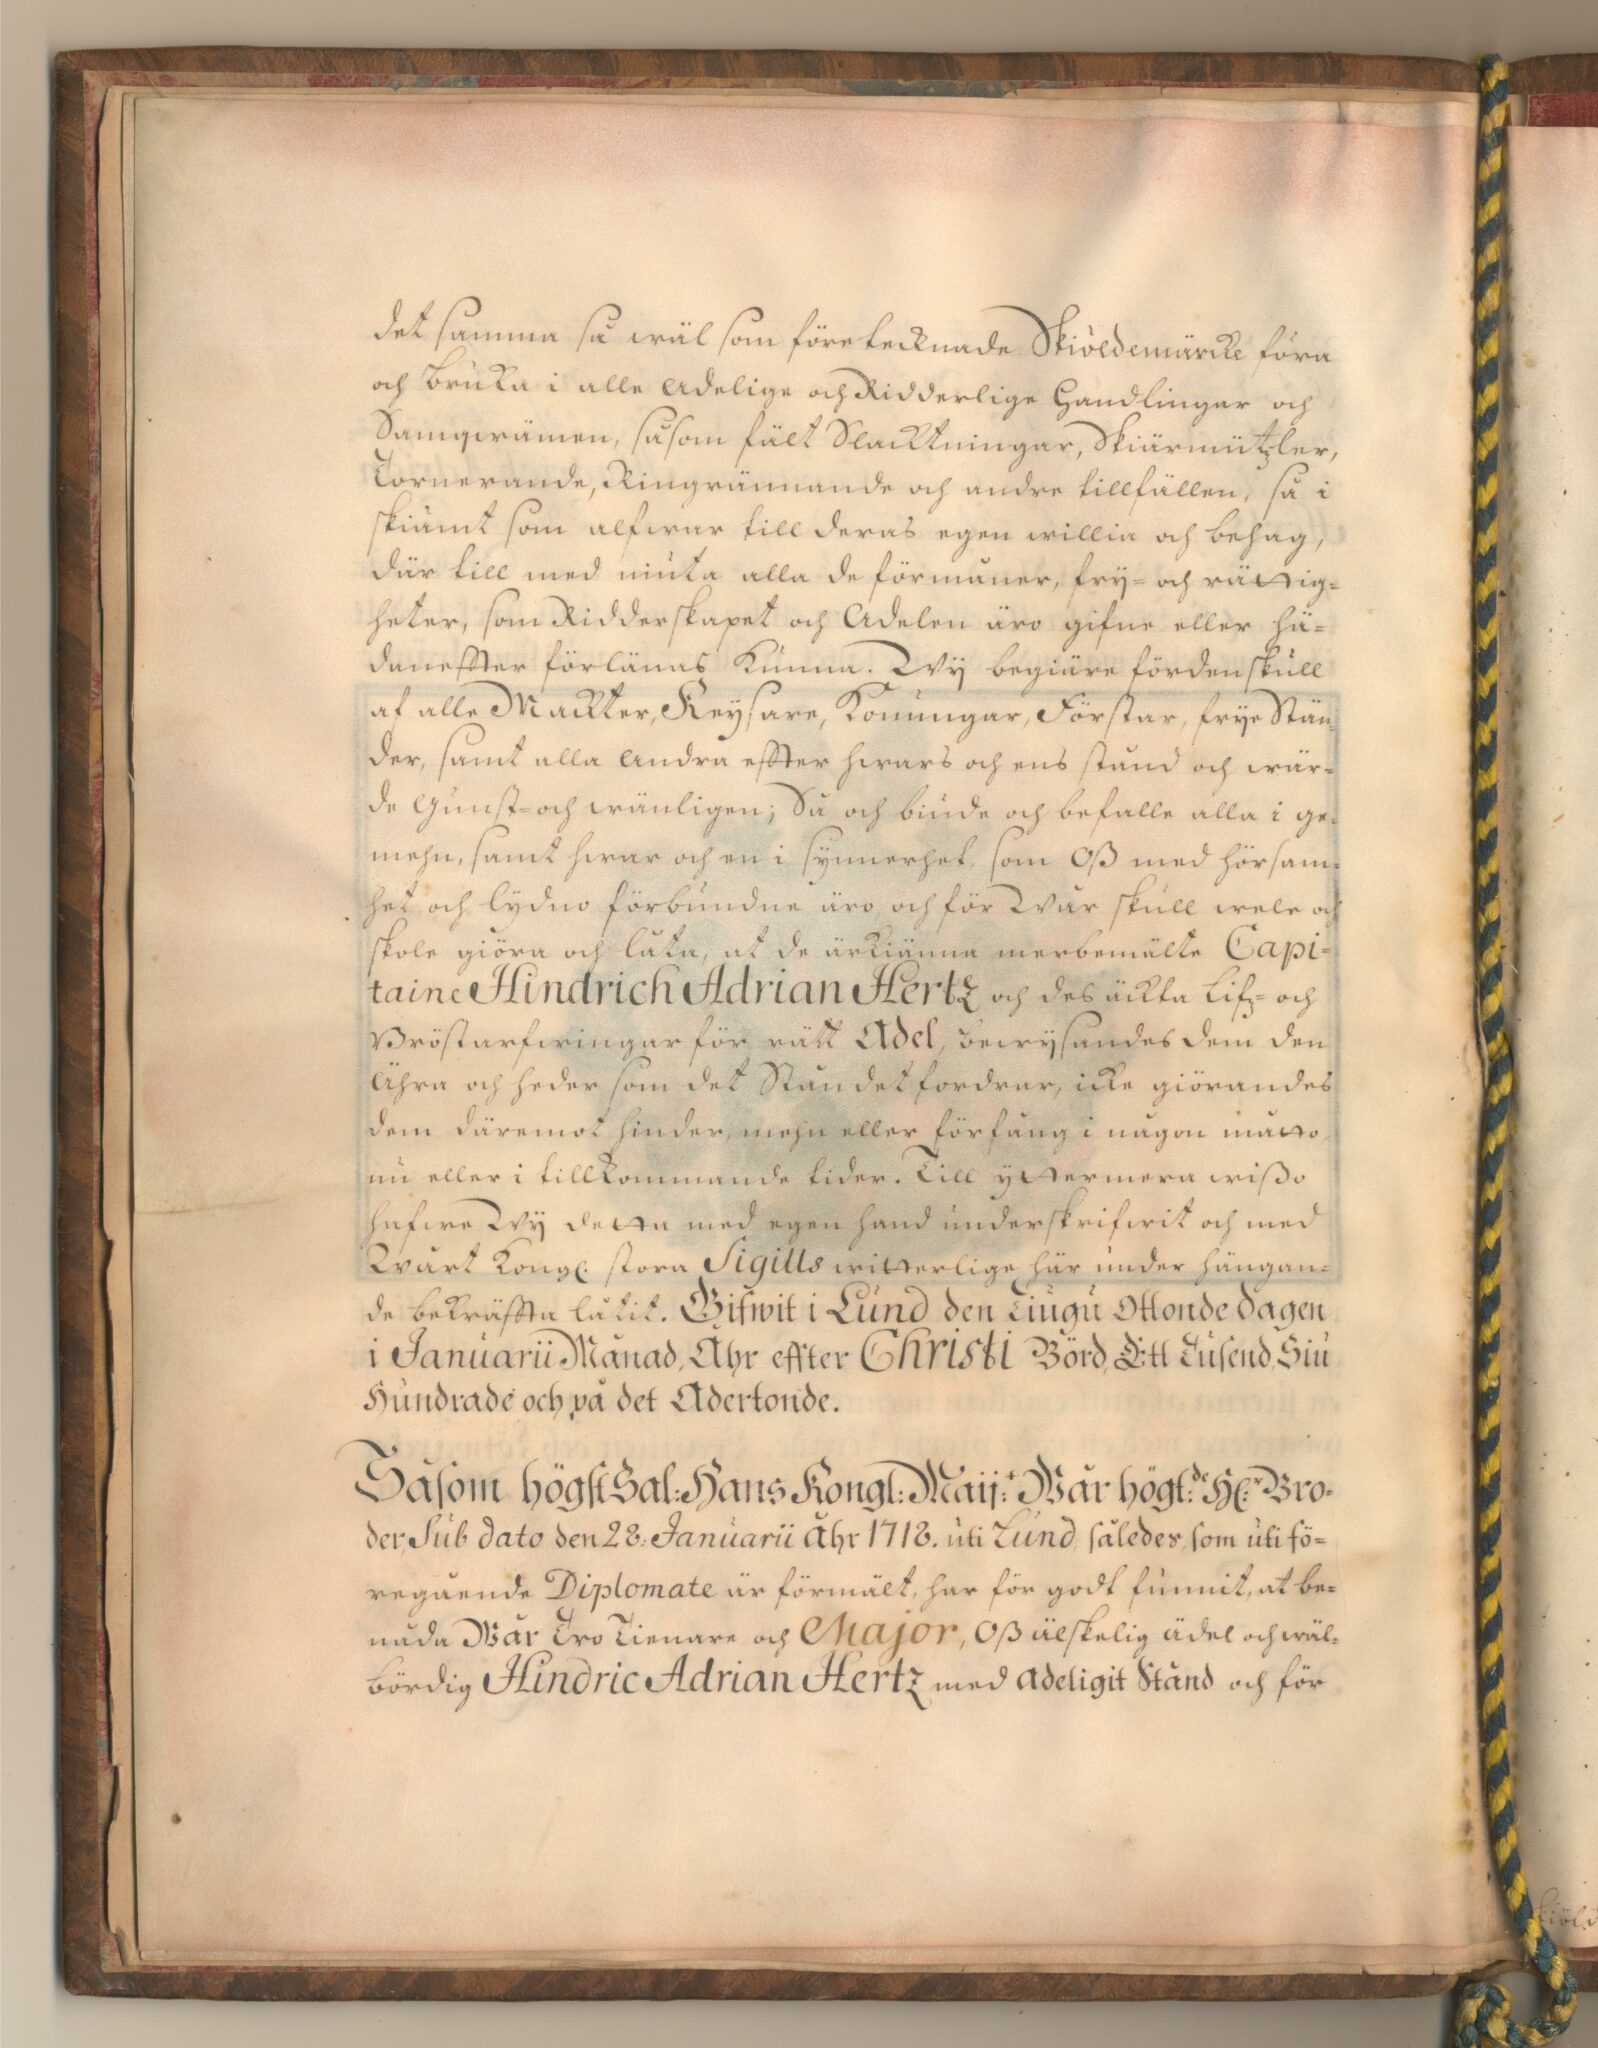 det samma så wäl som företecknade Skiöldemärcke föra
och bruka i alle Adelige och Ridderlige Handlingar och
Samqwämen, såsom fält Slacktningar, Skiärmützler,
Tornerande, Ringrännande och andre tillfällen, så i
skiämt som alfwar till deras egen willia och behag,
där till med niuta alla de förmåner, fry- och rättig-
heter, som Ridderskapet och Adelen äro gifne eller hä-
daneffter förlänas kunna. Wij begiäre fördenskull
af alle Mackter, Keysare, Konungar, Förstar, frye Stän-
der, samt alla Andra effter hwars och ens stånd och wär-
de Gunst- och wänligen; Så och biude och befalle alla i ge-
mehn, samt hwar och en i synnerhet, som Oß med hörsam-
het och lydno förbundne äro, och för Wår skull wele och
skole giöra och låta, at de ärkiänna merbemälte Capi-
taine Hindrich Adrian Hertz och des äckta Lifz- och
Bröstarfwingar för rätt Adel, bewysandes dem den
Ähra och heder som det Ståndet fordrar, icke giörandes
dem däremot hinder, mehn eller förfång i någon måtto
nu eller i tillkommande tider. Till yttermera wißo
hafwe Wij detta med egen hand underskrifwit och med
Wårt Kongl: stora Sigills witterlige här under hängan-
de bekräffta låtit. Gifwit i Lund den Tiugu Ottonde dagen
i Januarii Månad, Åhr effter Christi Börd, Ett Tusend, Siu
Hundrade och på det Adertonde.
Såsom högst Sal: Hans Kongl: Maij:t Wår högt:de H:r Bro-
der, Sub dato den 28: Januarii åhr 1718. uti Lund, således, som uti fö-
regående Diplomate är förmält, har för godt funnit, at be-
nåda Wår Tro Tienare och Major, Oß älskelig ädel och wäl-
bördig Hindric Adrian Hertz med adeligit Stånd och för